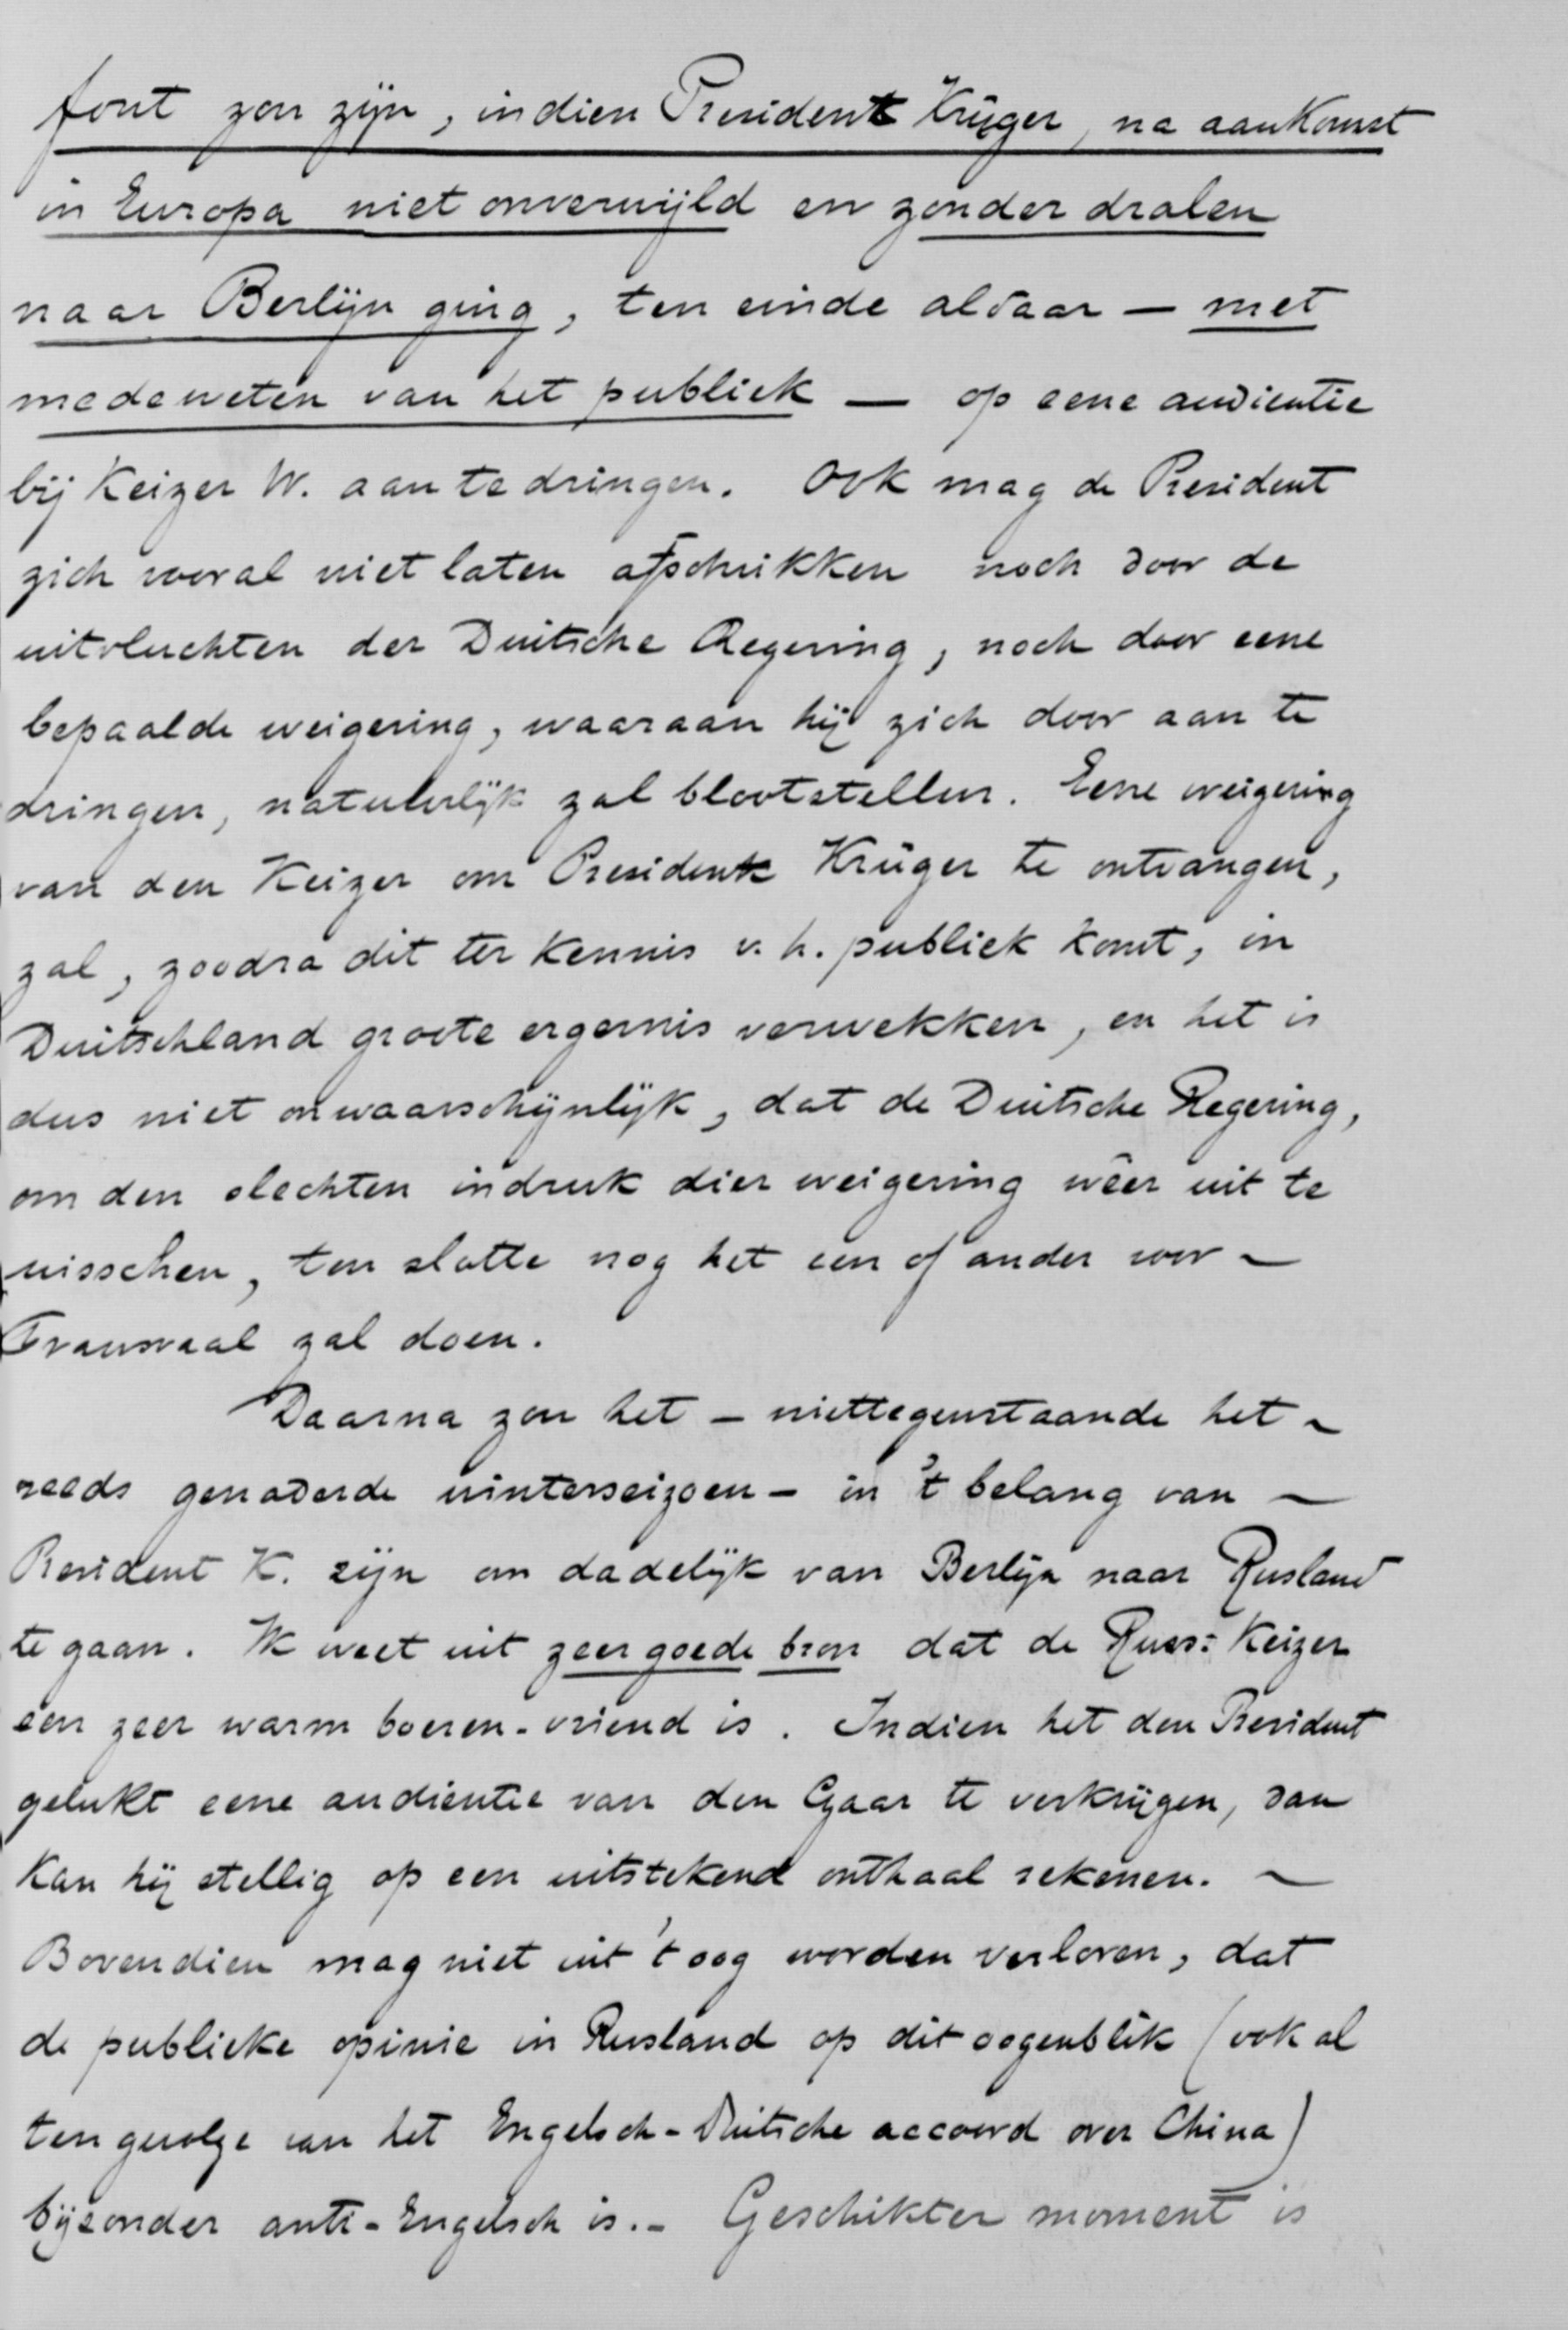 fout zou zijn, indien President Krüger, na aankomst
in Europa niet onverwijld en zonder dralen
naar Berlijn ging, ten einde aldaar — met
medeweten van het publiek — op eene audientie
bij Keizer W. aan te dringen. Ook mag de President
zich vooral niet laten afschrikken noch door de
uitvluchten der Duitsche Regering, noch door eene
bepaalde weigering, waaraan hij zich door aan te
dringen, natuurlijk zal blootstellen. Eene weigering
van den Keizer om President Krüger te ontvangen,
zal, zoodra dit ter kennis v. h. publiek komt, in
Duitschland groote ergernis verwekken, en het is
dus niet onwaarschijnlijk, dat de Duitsche Regering,
om den slechten indruk dier weigering wêer uit te
wisschen, ten slotte nog het een of ander voor –
Transvaal zal doen.
Daarna zou het – niettegenstaande het –
reeds genaderde winterseizoen – in 't belang van –
President K. zijn om dadelijk van Berlijn naar Rusland
te gaan. Ik weet uit zeer goede bron dat de Russ: Keizer
een zeer warm boeren-vriend is. Indien het den President
gelukt eene audientie van den Czaar te verkrijgen, dan
kan hij stellig op een uitstekend onthaal rekenen. –
Bovendien mag niet uit 't oog worden verloren, dat
de publieke opinie in Rusland op dit oogenblik (ook al
tengevolge van het Engelsch-Duitsche accoord over China)
bijzonder anti-Engelsch is. – Geschikter moment is